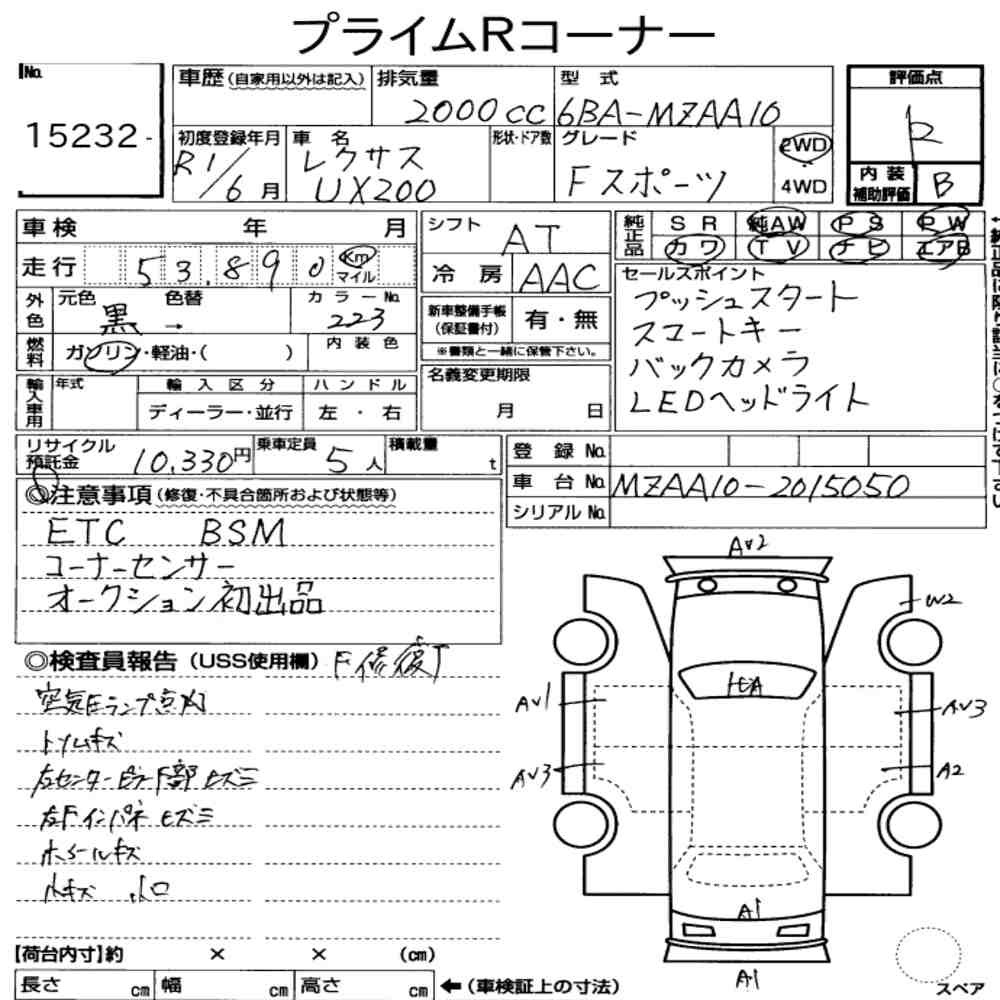 プライムRコーナー
No.
15232-
車歴(自家用以外は記入)
排気量
2000cc
型 式
6BA-MZAA10
初度登録年月
R1/6月
車 名
レクサス
UX200
形状・ドア数
グレード
Fスポーツ
2WD
4WD
評価点
R
内装
補助評価
B
車検 年 月
走行 53,890 Km
マイル
シフト AT
冷房 AAC
純正品
SR 純AW PS PW
カワ TV ナビ エアB
外色
元色 色替
黒 →
カラーNo.
223
新車整備手帳
(保証書付)
有・無
※書類と一緒に保管下さい。
セールスポイント
プッシュスタート
スマートキー
バックカメラ
LEDヘッドライト
燃料
ガソリン・軽油・( )
内装色
輸入車用
年式
輸入区分
ディーラー・並行
ハンドル
左・右
名義変更期限
月 日
リサイクル
預託金
10,330円
乗車定員
5人
積載量
t
登録No.
車台No. MZAA10-2015050
シリアルNo.
◎注意事項(修復・不具合箇所および状態等)
ETC BSM
コーナーセンサー
オークション初出品
◎検査員報告(USS使用欄)
F修復
空気Eランプ点灯
トリムキズ
左センターピラー下部ヒズミ
左Fインパネヒズミ
ホイールキズ
小キズ 小凹
AV2
W2
AV1
HEA
AV3
AV3
A2
A1
A1
【荷台内寸】約 × × (cm)
長さ cm 幅 cm 高さ cm ←(車検証上の寸法)
スペア